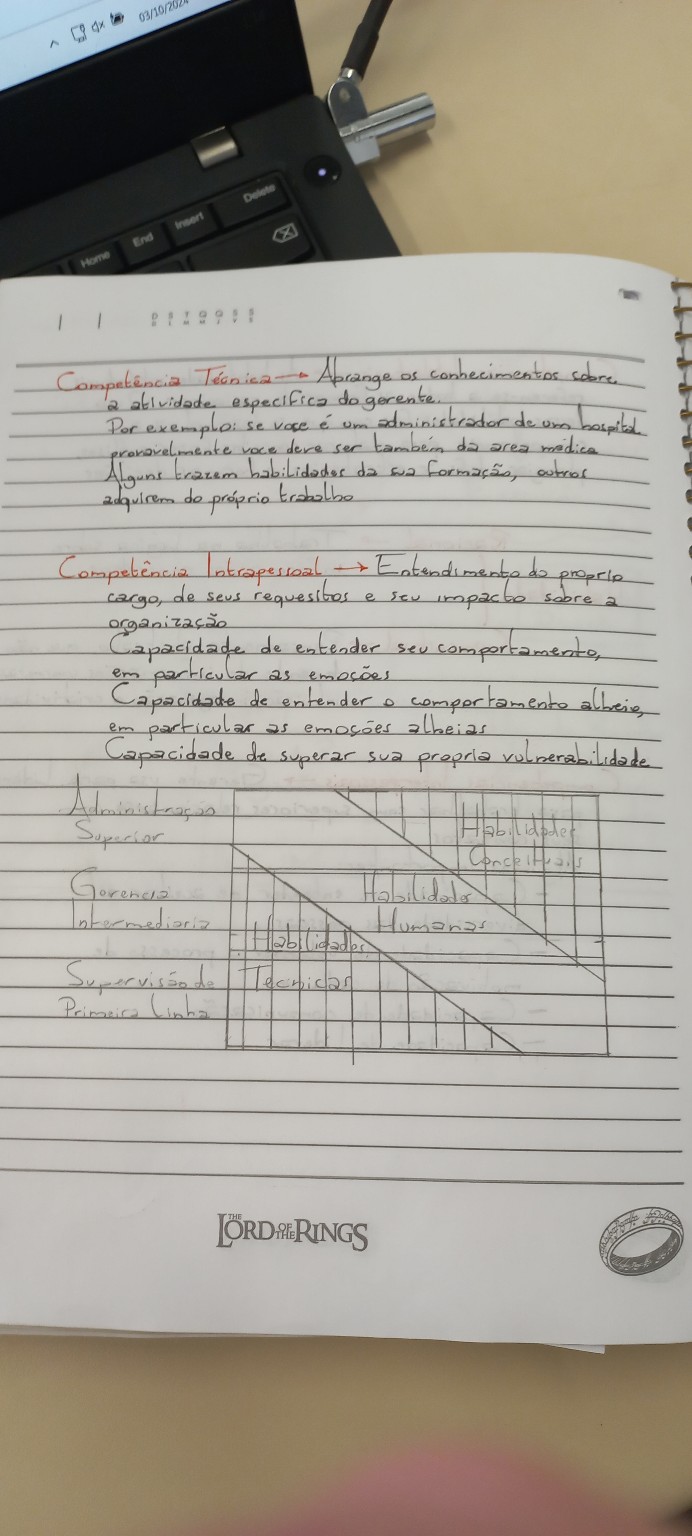 03/10/2024
Delete
Insert
End
Home
D S T Q Q S S
Competência Técnica → Abrange os conhecimentos sobre
a atividade especifica do gerente.
Por exemplo: se voce é um administrador de um hospital
provavelmente voce deve ser também da area medica
Alguns trazem habilidades da sua formação, outros
adquirem do próprio trabalho
Competência Intrapessoal → Entendimento do proprio
cargo, de seus requesitos e seu impacto sobre a
organização
Capacidade de entender seu comportamento,
em particular as emoções
Capacidade de entender o comportamento alheio,
em particular as emoções alheias
Capacidade de superar sua propria vulnerabilidade
Administração
Superior
Habilidades
Conceituais
Gerencia
Intermediaria
Habilidades
Humanas
Habilidades
Técnicas
Supervisão de
Primeira Linha
THE LORD OF THE RINGS